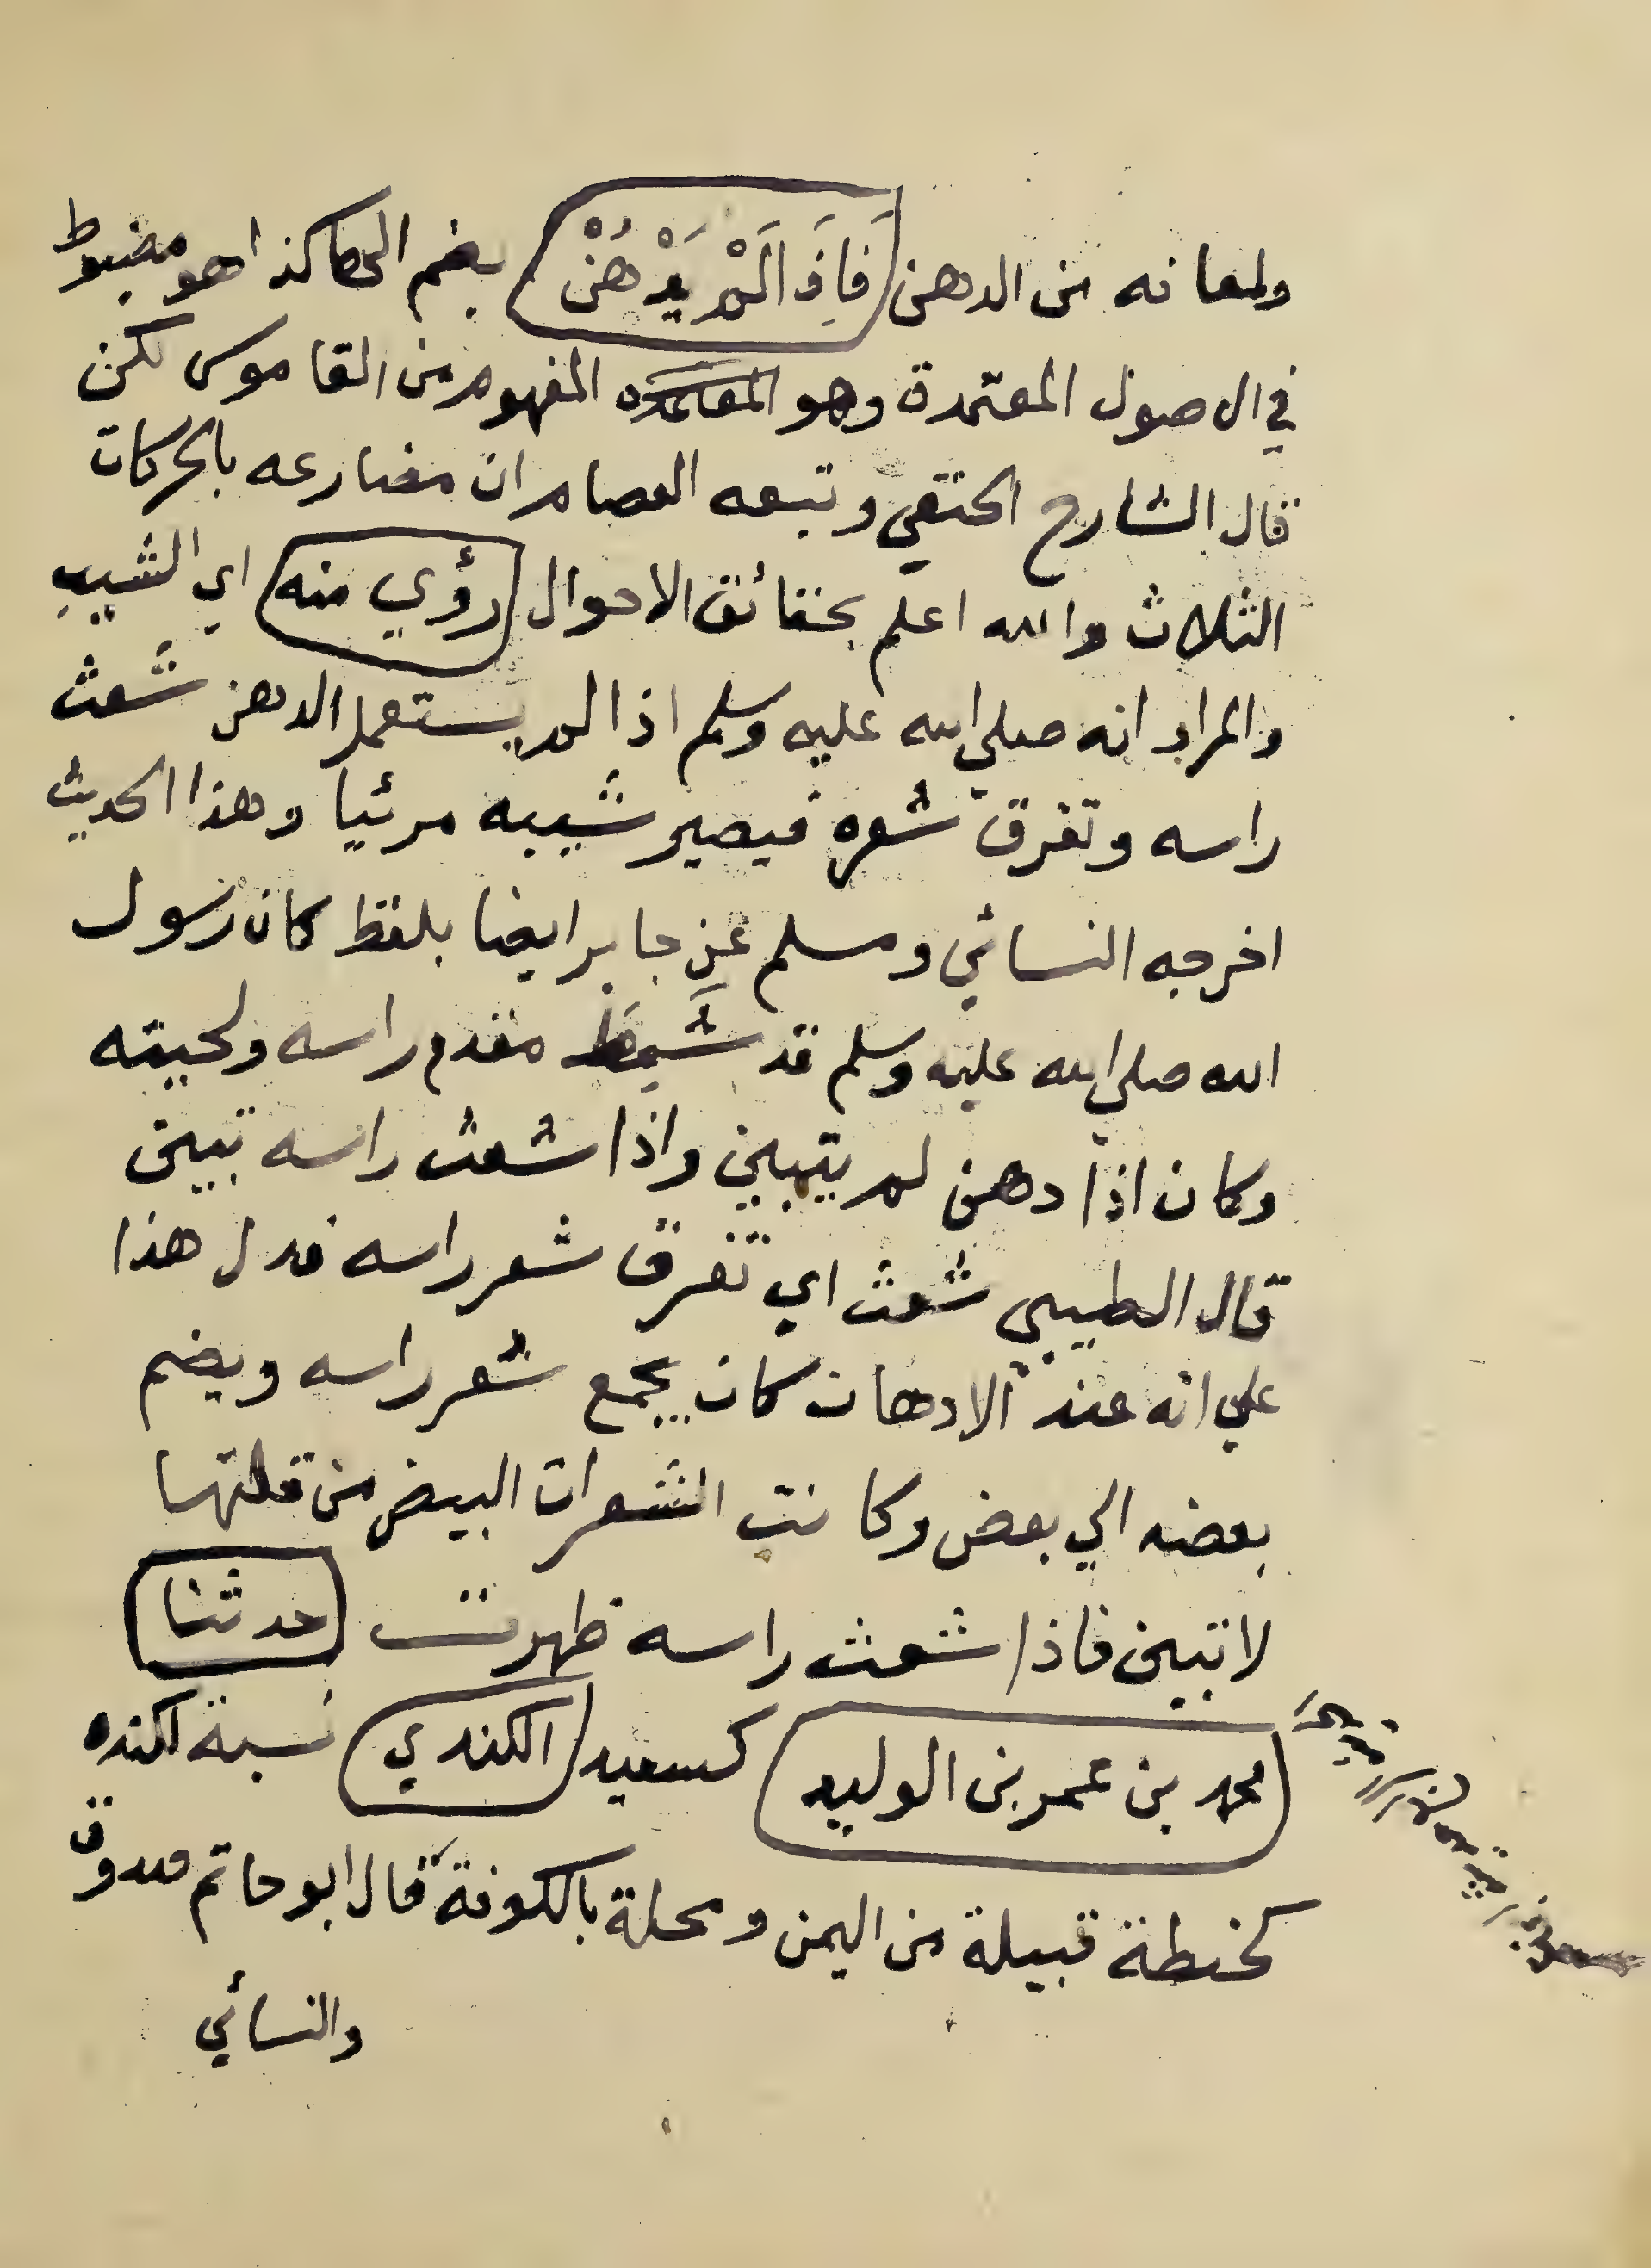 ولمعانه من الدهن فَاِذَ الَمْ يَدْهُنْ بضم الحا كذا هو مضبوط
في الاصول المعتمدة وهو المعتمده المفهوم من القاموس لكن
قال الشارح الحنفي وتبعه العصام ان مضارعه بالحركات
الثلاث والله اعلم بحقائق الاحوال رؤي منه اي الشيب
والمراد انه صلي الله عليه وسلم اذا لم يستعمل الدهن شعث
راسه وتفرق شعره فيصير شيبه مرئيا وهذا الحديث
اخرجه النسائي ومسلم عن جابر ايضا بلفظ كان رسول
الله صلي الله عليه وسلم قد شَمِطَ مقدم راسه ولحيته
وكان اذا دهن لم يتبين واذا شعث راسه تبين
قال الطيبي شعث اي تفرق شعر راسه فدل هذا
علي انه عند الادهان كان يجمع شعر راسه ويضم
بعضه الي بعض وكانت الشعرات البيض من قلتها
لا تبين فاذا شعث راسه ظهرت حدثنا
محمد بن عمر بن الوليد كسعيد الكندي نسبة لكنده
كحنطة قبيلة من اليمن ومحلة بالكوفة قال ابو حاتم صدوق
والنسائي